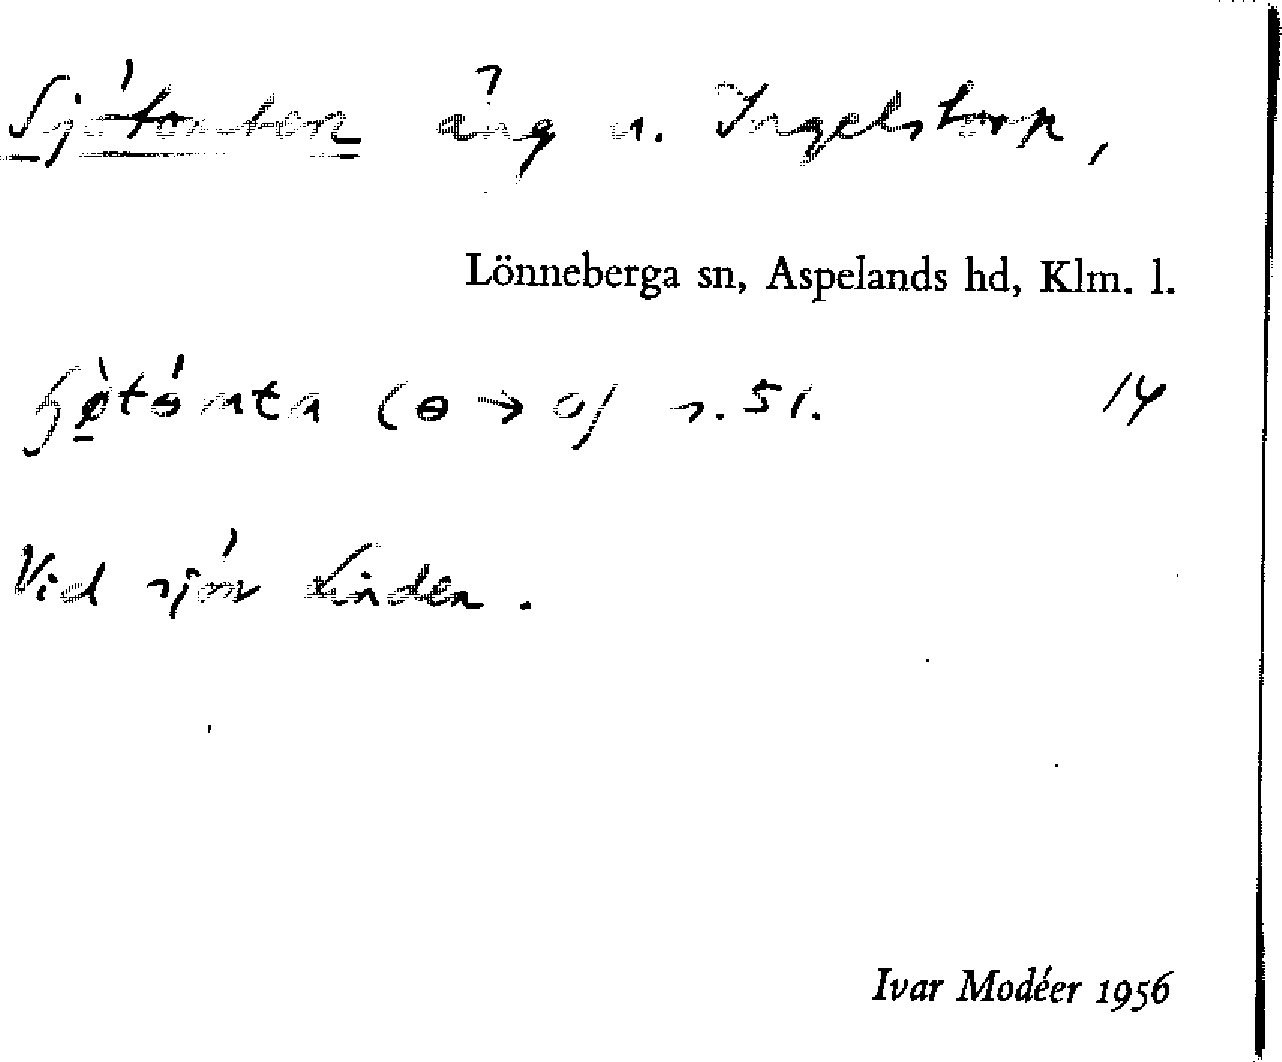 Sjötomten äng n. Ingelstorp,
Lönneberga sn, Aspelands hd, Klm. l.
(ɵ → o) s. 51. 14
Vid sjön Linden.
Ivar Modéer 1956